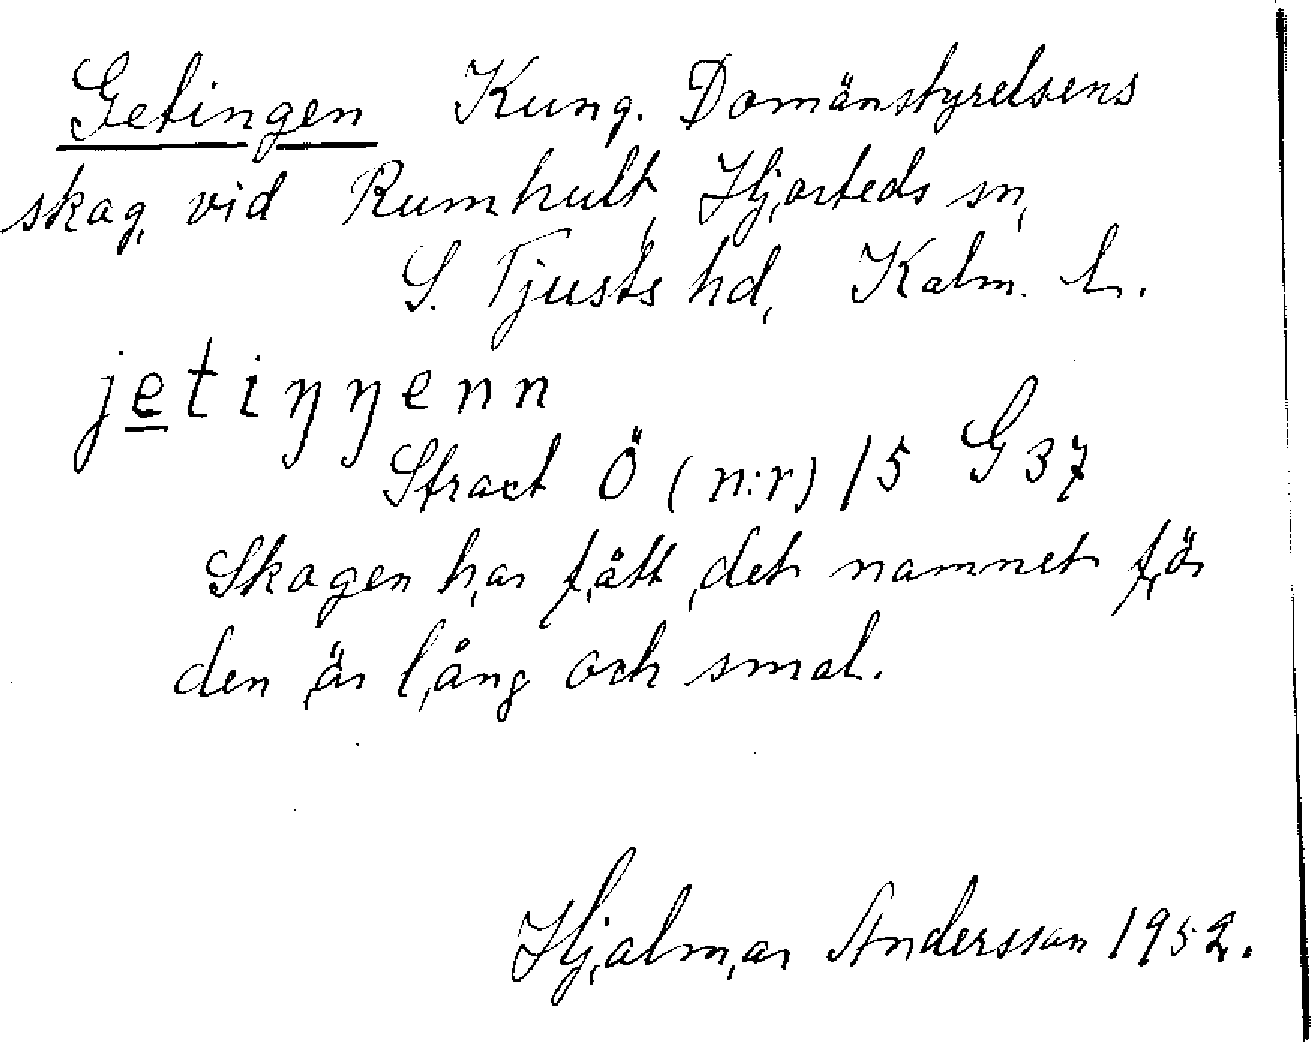 Getingen Kung. Domänstyrelsens
skog, vid Rumhult, Hjorteds sn,
S. Tjusts hd, Kalm. L.
jetiŋŋenn
Stract Ö (n:r) 15 G 37
Skogen har fått det namnet för
den är lång och smal.
Hjalmar Andersson 1952.